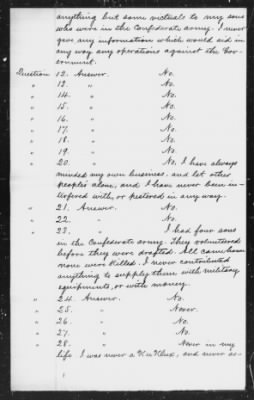 anything but some victuals to my sons
who were in the Confederate army. I never
gave any information which would aid in
any way any operations against the Gov-
ernment.
Question 12. Answer. No.
" 13. " No.
" 14. " No.
" 15. " No.
" 16. " No.
" 17. " No.
" 18. " No.
" 19. " No.
" 20. " No. I have always
minded my own business, and let other
people's alone, and I have never been in-
terfered with, or pestered in any way.
" 21. Answer. No.
" 22. " No.
" 23. " I had four sons
in the Confederate army. They volunteered
before they were drafted. All came home
none were killed. I never contributed
anything to supply them with military
equipments, or with money.
" 24. Answer. No.
" 25. " Never.
" 26. " No.
" 27. " No.
" 28. " Never in my
life. I was never a Ku Klux, and never as-